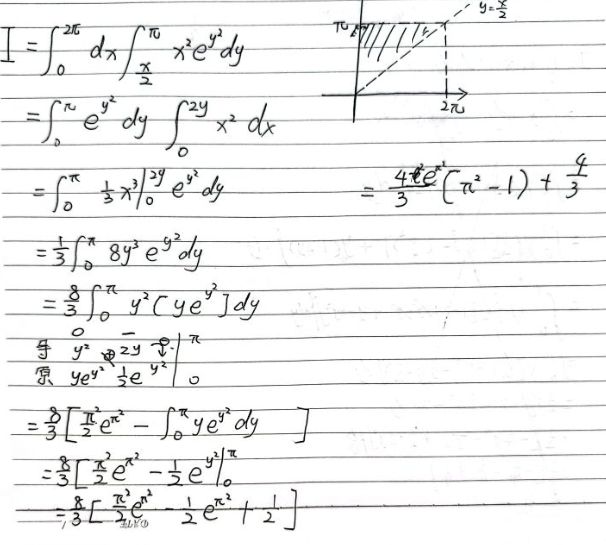 I = ∫₀^{2π} dx ∫_{x/2}^{π} x² e^{y²} dy
= ∫₀^{π} e^{y²} dy ∫₀^{2y} x² dx
= ∫₀^{π} 1/3 x³ |₀^{2y} e^{y²} dy
= 1/3 ∫₀^{π} 8y³ e^{y²} dy
= 8/3 ∫₀^{π} y² [y e^{y²}] dy
导 y² ⊕ 2y ⊖ | π
原 ye^{y²} 1/2 e^{y²} | 0
= 8/3 [π²/2 e^{π²} − ∫₀^{π} y e^{y²} dy ]
= 8/3 [π²/2 e^{π²} − 1/2 e^{y²} |₀^{π}
= 8/3 [π²/2 e^{π²} − 1/2 e^{π²} + 1/2]
y = x/2
π
2π
= 4e^{π²}/3 (π² − 1) + 4/3